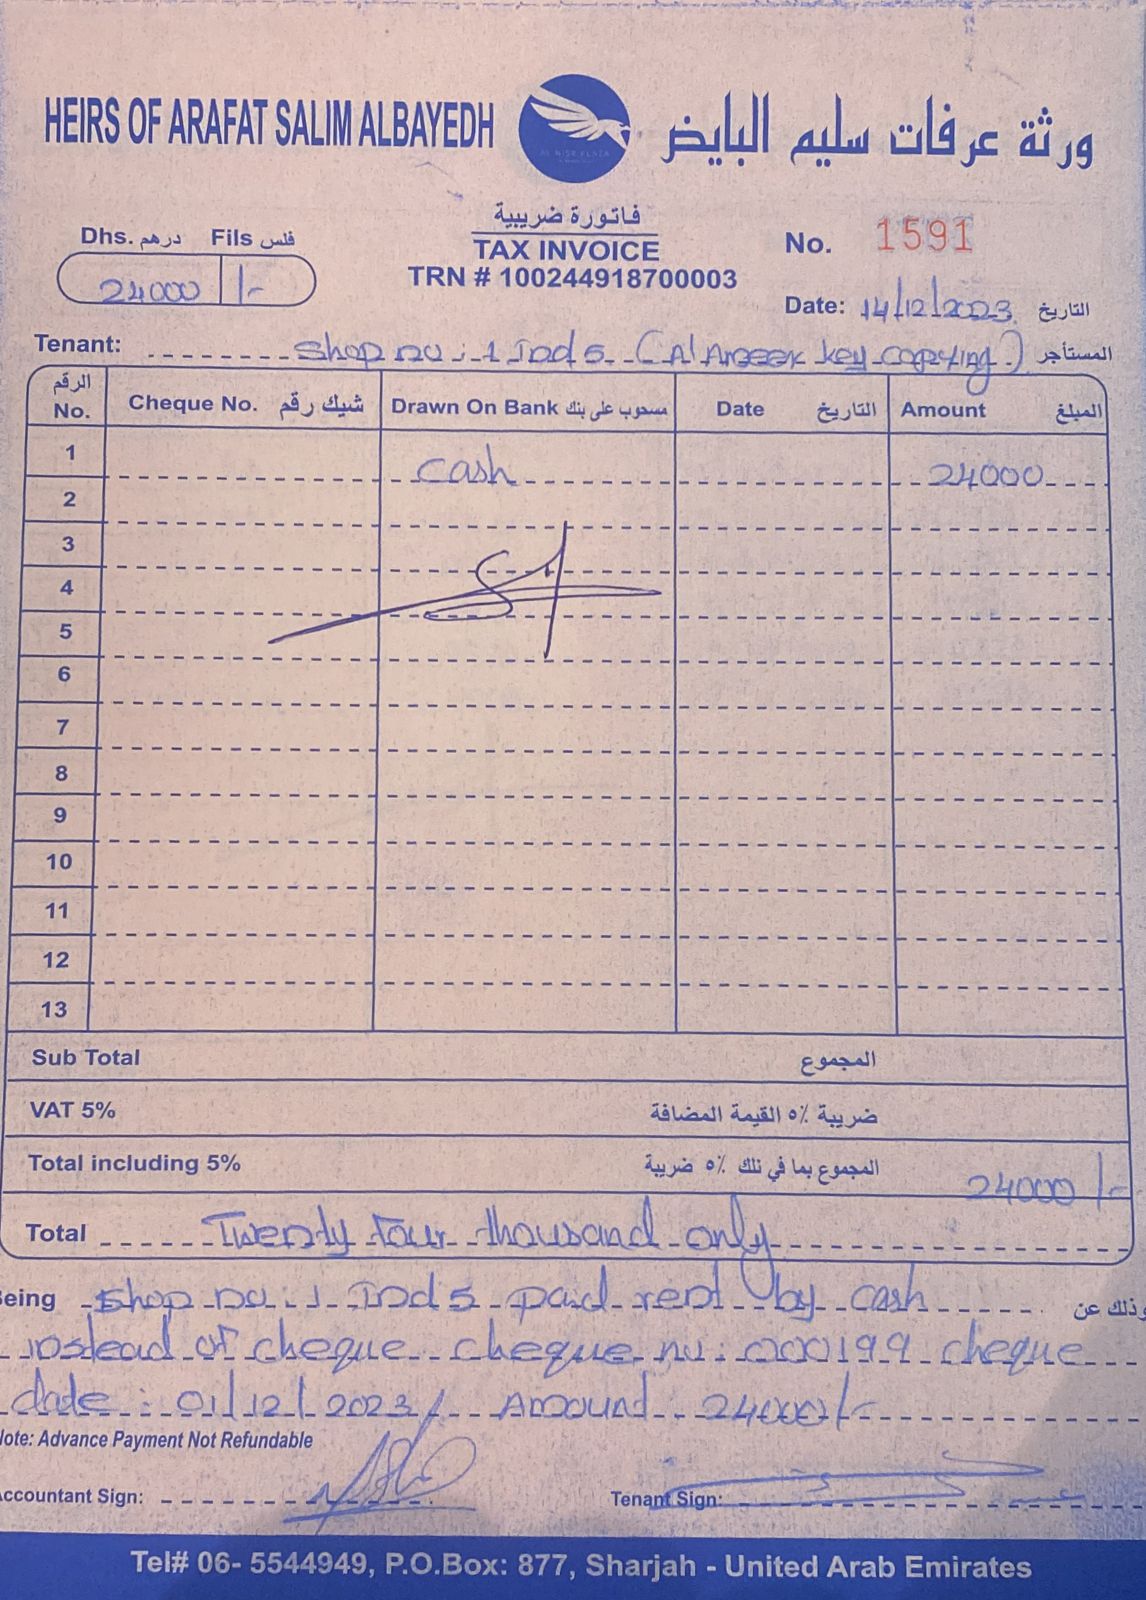 HEIRS OF ARAFAT SALIM ALBAYEDH
ورثة عرفات سليم البايض
AL NISR PLAZA
فاتورة ضريبية
TAX INVOICE
TRN # 100244918700003
Dhs. درهم Fils فلس
24000 /-
No. 1591
Date: 14/12/2023 التاريخ
Tenant: Shop no : 1 Ind 5 (Al Areek key copying) المستأجر
الرقم No. Cheque No. شيك رقم Drawn On Bank مسحوب على بنك Date التاريخ Amount المبلغ
1 cash 24000
2
3
4
5
6
7
8
9
10
11
12
13
Sub Total المجموع
VAT 5% ضريبة ٥٪ القيمة المضافة
Total including 5% المجموع بما في تلك ٥٪ ضريبة 24000 /-
Total Twenty four thousand only
Being Shop no : 1 Ind 5 paid rent by cash وذلك عن
instead of cheque cheque no: 000199 cheque
date : 01/12/2023/ Amount 24000/-
Note: Advance Payment Not Refundable
Accountant Sign: Tenant Sign:
Tel# 06- 5544949, P.O.Box: 877, Sharjah - United Arab Emirates